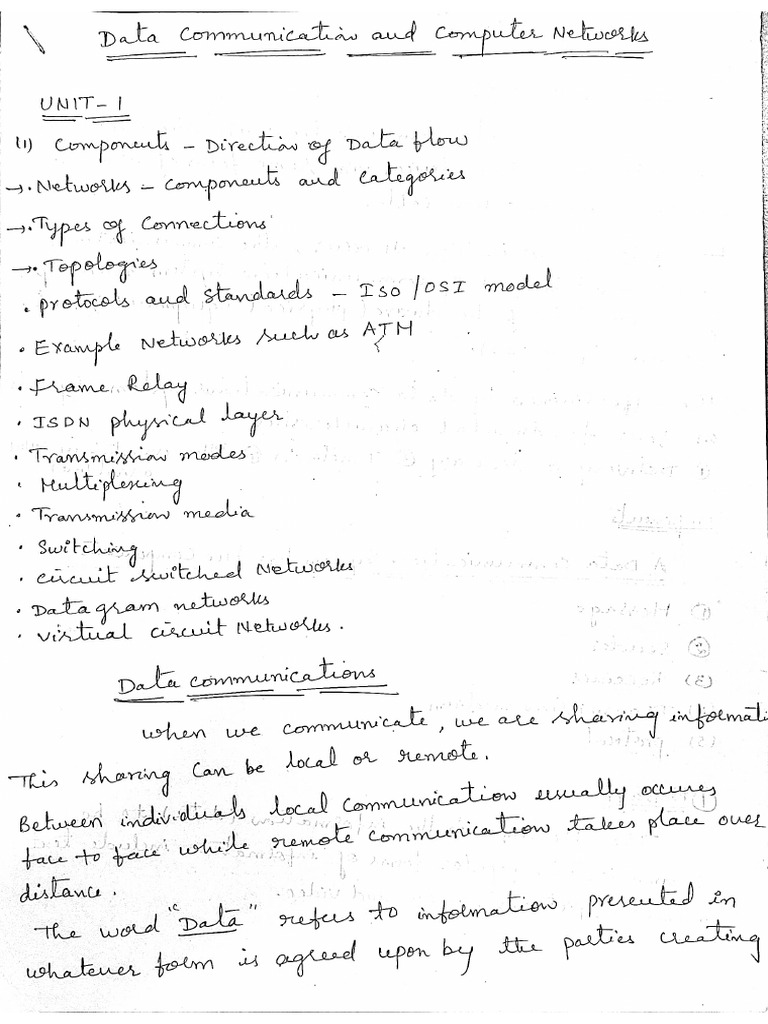 Data Communication and Computer Networks
UNIT-1
(1) Components – Direction of Data flow
→ . Networks – Components and Categories
→ . Types of Connections
→ . Topologies
. Protocols and Standards – ISO / OSI model
. Example Networks such as ATM
. Frame Relay
. ISDN physical layer
. Transmission modes
. Multiplexing
. Transmission media
. Switching
. Circuit switched Networks
. Datagram networks
. Virtual circuit Networks.
Data Communications
When we communicate, we are sharing informati
This sharing can be local or remote.
Between individuals local communication usually occures
face to face while remote communication takes place over
distance.
The word "Data" refers to information presented in
whatever form is agreed upon by the parties creating